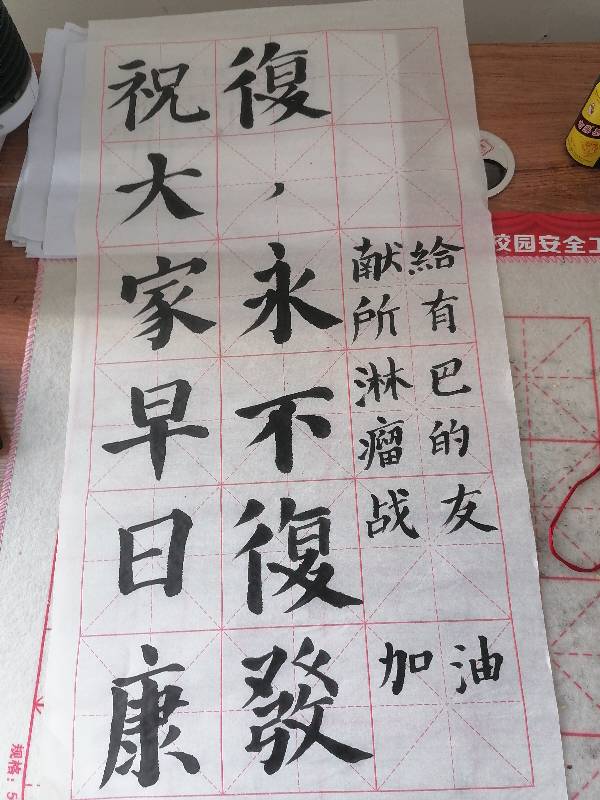 祝大家早日康
復，永不復發
献給
所有
淋巴
瘤的
战友
加油
校园安全工
规格：5